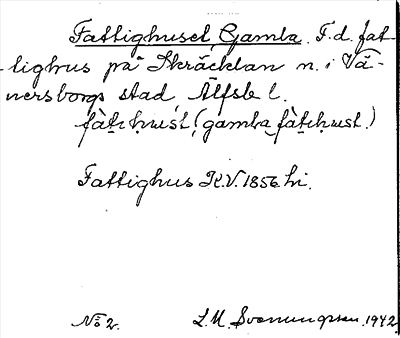 Fattighuset, Gamla. F.d. fat-
tighus på Skräcklan n. i Vä-
nersborgs stad, Älfsb l.
fàtchust, (gamla fàtchust.)
Fattighus K.V. 1856 hi.
No 2. L.M. Svenungsson. 1942.